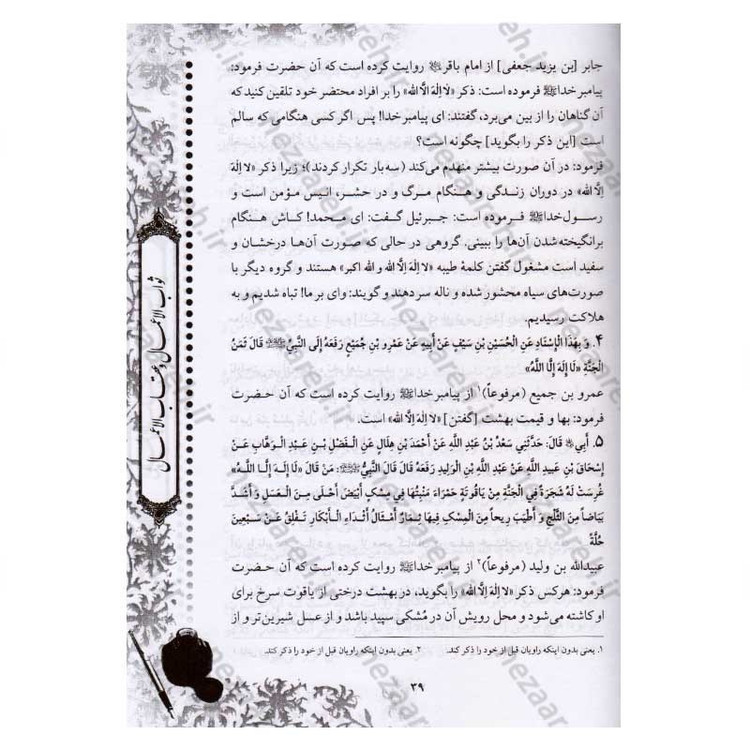 جابر [بن یزید جعفی] از امام باقر روایت کرده است که آن حضرت فرمود:
پیامبر خدا فرموده است: ذکر «لا اِلٰهَ اِلَّا اللّه» را بر افراد محتضر خود تلقین کنید که
آن گناهان را از بین می‌برد، گفتند: ای پیامبر خدا! پس اگر کسی هنگامی که سالم
است [این ذکر را بگوید] چگونه است؟
فرمود: در آن صورت بیشتر منهدم می‌کند (سه بار تکرار کردند)؛ زیرا ذکر «لا اِلٰهَ
اِلَّا اللّه» در دوران زندگی و هنگام مرگ و در حشر، انیس مؤمن است و
رسول خدا فرموده است: جبرئیل گفت: ای محمد! کاش هنگام
برانگیخته‌شدن آن‌ها را ببینی. گروهی در حالی که صورت آن‌ها درخشان و
سفید است مشغول گفتن کلمهٔ طیبه «لا اِلٰهَ اِلَّا اللّه و الله اکبر» هستند و گروه دیگر با
صورت‌های سیاه محشور شده و ناله سر دهند و گویند: وای بر ما! تباه شدیم و به
هلاکت رسیدیم.
۴. وَ بِهَذَا الْإِسْنَادِ عَنِ الْحُسَيْنِ بْنِ سَيْفٍ عَنْ أَبِيهِ عَنْ عَمْرِو بْنِ جُمَيْعٍ رَفَعَهُ إِلَى النَّبِيِّ قَالَ ثَمَنُ
الْجَنَّةِ «لَا إِلَهَ إِلَّا اللَّهُ»
عمرو بن جمیع (مرفوعاً)۱ از پیامبر خدا روایت کرده است که آن حضرت
فرمود: بها و قیمت بهشت [گفتن] «لا اِلٰهَ اِلَّا اللّه» است.
۵. أَبِي قَالَ: حَدَّثَنِي سَعْدُ بْنُ عَبْدِ اللَّهِ عَنْ أَحْمَدَ بْنِ هِلَالٍ عَنِ الْفَضْلِ بْنِ عَبْدِ الْوَهَّابِ عَنْ
إِسْحَاقَ بْنِ عُبَيْدِ اللَّهِ عَنْ عُبَيْدِ اللَّهِ بْنِ الْوَلِيدِ رَفَعَهُ قَالَ قَالَ النَّبِيُّ: مَنْ قَالَ «لَا إِلَهَ إِلَّا اللَّهُ»
غُرِسَتْ لَهُ شَجَرَةٌ فِي الْجَنَّةِ مِنْ يَاقُوتَةٍ حَمْرَاءَ مَنْبِتُهَا فِي مِسْكٍ أَبْيَضَ أَحْلَى مِنَ الْعَسَلِ وَ أَشَدَّ
بَيَاضاً مِنَ الثَّلْجِ وَ أَطْيَبَ رِيحاً مِنَ الْمِسْكِ فِيهَا ثِمَارٌ أَمْثَالُ أَثْدَاءِ الْأَبْكَارِ تَفْلِقُ عَنْ سَبْعِينَ
حُلَّةً
عبیدالله بن ولید (مرفوعاً)۲ از پیامبر خدا روایت کرده است که آن حضرت
فرمود: هرکس ذکر «لا اِلٰهَ اِلَّا اللّه» را بگوید، در بهشت درختی از یاقوت سرخ برای
او کاشته می‌شود و محل رویش آن در مُشکی سپید باشد و از عسل شیرین‌تر و از
۱. یعنی بدون اینکه راویان قبل از خود را ذکر کند. ۲. یعنی بدون اینکه راویان قبل از خود را ذکر کند.
۳۹
ثواب الاعمال و عقاب الاعمال
nezaareh.ir